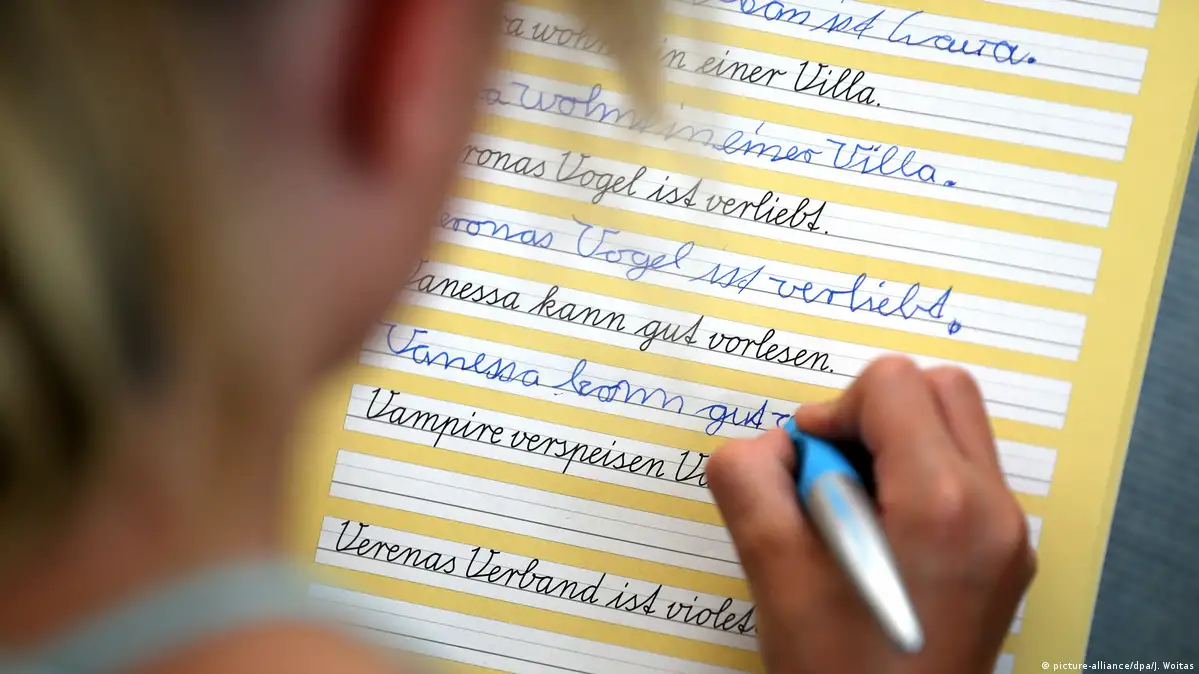 ist Laura.
in einer Villa.
a wohnt in einer Villa.
ronas Vogel ist verliebt.
eronas Vogel ist verliebt.
Vanessa kann gut vorlesen.
Vanessa kann gut
Vampire verspeisen
Verenas Verband ist violet
© picture-alliance/dpa/J. Woitas